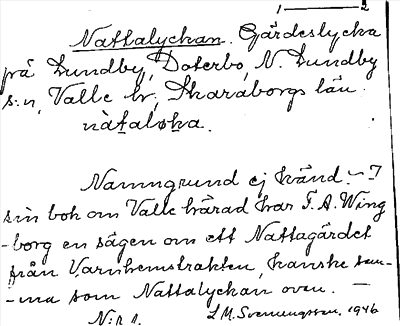 1 — 2
Nattalyckan. Gärdeslycka
på Lundby, Doterbo, N. Lundby
s:n, Valle hd, Skaraborgs län.
nàtaløka.
Namngrund ej känd. – I
sin bok om Valle härad har T. A. Wing
-borg en sägen om ett Nattagärdet
från Varnhemstrakten, kanske sam-
-ma som Nattalyckan ovan. –
N:r 1. L. M. Svenungsson, 1946